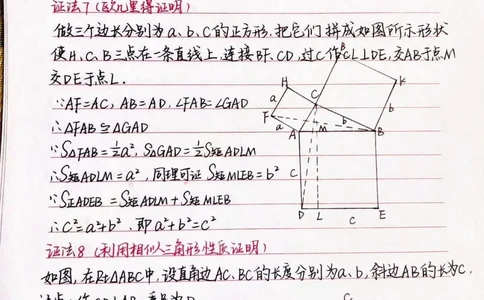 证法7(欧几里得证明)
做三个边长分别为a、b、c的正方形,把它们拼成如图所示形状
使H、C、B三点在一条直线上,连接BF、CD,过C作CL⊥DE,交AB于点M
交DE于点L.
∵AF=AC, AB=AD, ∠FAB=∠GAD
∴△FAB≌△GAD
∵S△FAB=½a², S△GAD=½S矩ADLM
∴S矩ADLM=a²,同理可证 S矩MLEB=b²
∵S正ADEB=S矩ADLM+S矩MLEB
∴c²=a²+b²,即a²+b²=c²
H
C
K
a
F
a
A
M
b
B
b
C
D
L
C
E
证法8(利用相似三角形性质证明)
如图,在Rt△ABC中,设直角边AC、BC的长度分别为a、b,斜边AB的长为c,
C